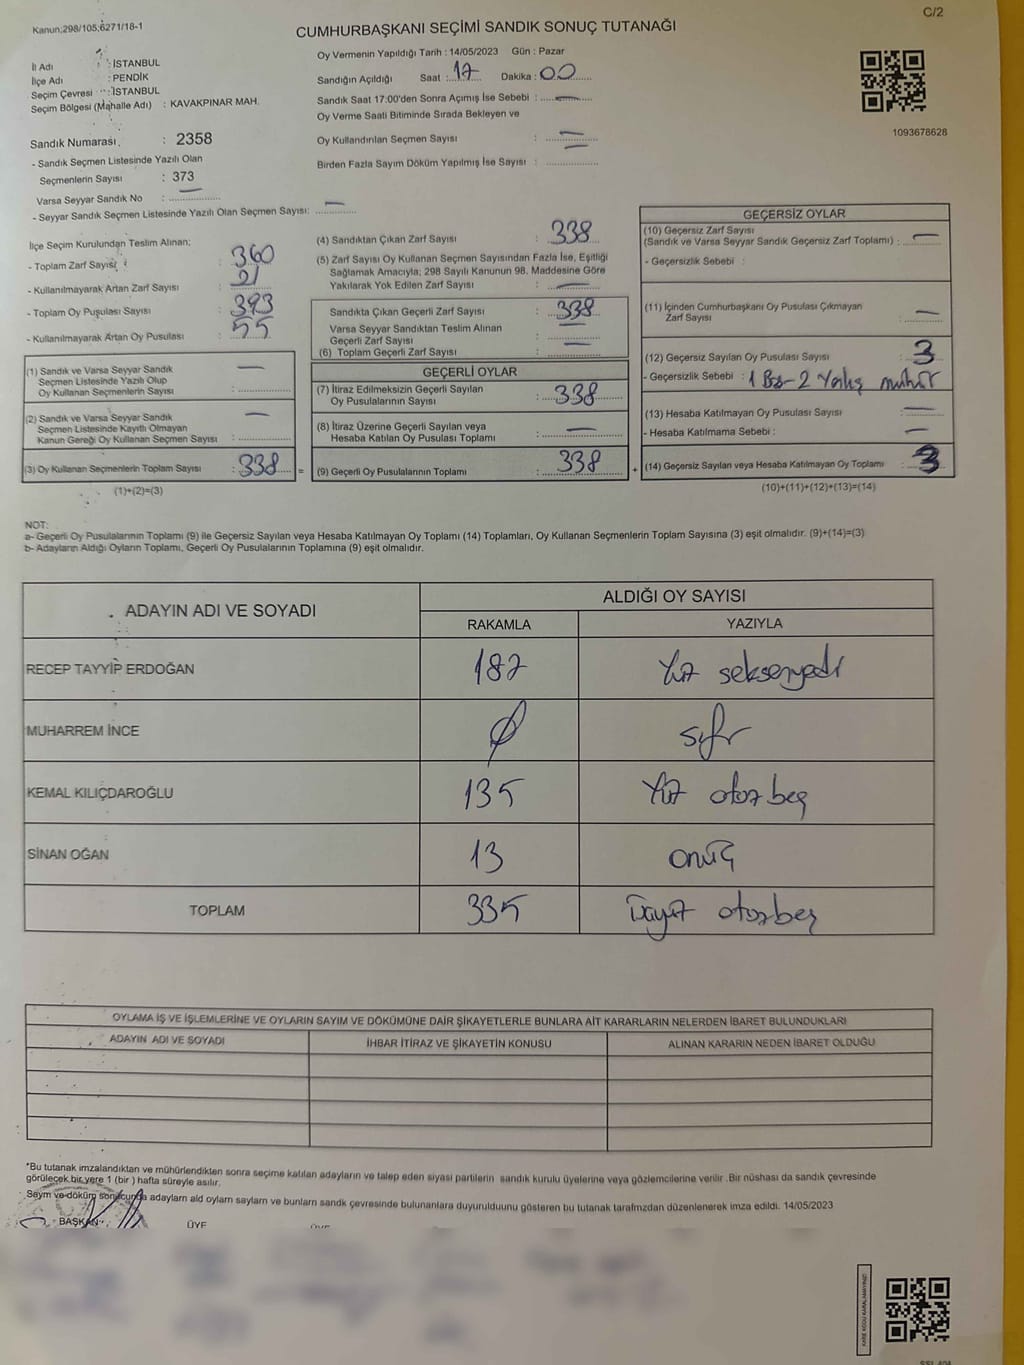 C/2
Kanun;298/105;6271/18-1
CUMHURBAŞKANI SEÇİMİ SANDIK SONUÇ TUTANAĞI
İl Adı : İSTANBUL
İlçe Adı : PENDİK
Seçim Çevresi : İSTANBUL
Seçim Bölgesi (Mahalle Adı) : KAVAKPINAR MAH.
Sandık Numarası : 2358
- Sandık Seçmen Listesinde Yazılı Olan
Seçmenlerin Sayısı : 373
Varsa Seyyar Sandık No : —
- Seyyar Sandık Seçmen Listesinde Yazılı Olan Seçmen Sayısı: —
Oy Vermenin Yapıldığı Tarih : 14/05/2023 Gün : Pazar
Sandığın Açıldığı Saat : 17 Dakika : 00
Sandık Saat 17:00'den Sonra Açımış İse Sebebi : —
Oy Verme Saati Bitiminde Sırada Bekleyen ve
Oy Kullandırılan Seçmen Sayısı : —
Birden Fazla Sayım Döküm Yapılmış İse Sayısı : —
1093678628
İlçe Seçim Kurulundan Teslim Alınan;
- Toplam Zarf Sayısı : 360
- Kullanılmayarak Artan Zarf Sayısı : 21
- Toplam Oy Pusulası Sayısı : 393
- Kullanılmayarak Artan Oy Pusulası : 55
(1) Sandık ve Varsa Seyyar Sandık
Seçmen Listesinde Yazılı Olup
Oy Kullanan Seçmenlerin Sayısı : —
(2) Sandık ve Varsa Seyyar Sandık
Seçmen Listesinde Kayıtlı Olmayan
Kanun Gereği Oy Kullanan Seçmen Sayısı : —
(3) Oy Kullanan Seçmenlerin Toplam Sayısı : 338 =
(1)+(2)=(3)
(4) Sandıktan Çıkan Zarf Sayısı : 338
(5) Zarf Sayısı Oy Kullanan Seçmen Sayısından Fazla İse, Eşitliği
Sağlamak Amacıyla; 298 Sayılı Kanunun 98. Maddesine Göre
Yakılarak Yok Edilen Zarf Sayısı : —
Sandıkta Çıkan Geçerli Zarf Sayısı : 338
Varsa Seyyar Sandıktan Teslim Alınan
Geçerli Zarf Sayısı : —
(6) Toplam Geçerli Zarf Sayısı : —
GEÇERLİ OYLAR
(7) İtiraz Edilmeksizin Geçerli Sayılan
Oy Pusulalarının Sayısı : 338
(8) İtiraz Üzerine Geçerli Sayılan veya
Hesaba Katılan Oy Pusulası Toplamı : —
(9) Geçerli Oy Pusulalarının Toplamı : 338 +
GEÇERSİZ OYLAR
(10) Geçersiz Zarf Sayısı
(Sandık ve Varsa Seyyar Sandık Geçersiz Zarf Toplamı) : —
- Geçersizlik Sebebi :
(11) İçinden Cumhurbaşkanı Oy Pusulası Çıkmayan
Zarf Sayısı : —
(12) Geçersiz Sayılan Oy Pusulası Sayısı : 3
- Geçersizlik Sebebi : 1 Boş-2 Yanlış mühür
(13) Hesaba Katılmayan Oy Pusulası Sayısı : —
- Hesaba Katılmama Sebebi : —
(14) Geçersiz Sayılan veya Hesaba Katılmayan Oy Toplamı : 3
(10)+(11)+(12)+(13)=(14)
NOT:
a- Geçerli Oy Pusulalarının Toplamı (9) ile Geçersiz Sayılan veya Hesaba Katılmayan Oy Toplamı (14) Toplamları, Oy Kullanan Seçmenlerin Toplam Sayısına (3) eşit olmalıdır. (9)+(14)=(3)
b- Adayların Aldığı Oyların Toplamı, Geçerli Oy Pusulalarının Toplamına (9) eşit olmalıdır.
ADAYIN ADI VE SOYADI ALDIĞI OY SAYISI
RAKAMLA YAZIYLA
RECEP TAYYİP ERDOĞAN 187 Yüz seksenyedi
MUHARREM İNCE 0 sıfır
KEMAL KILIÇDAROĞLU 135 Yüz otuz beş
SİNAN OĞAN 13 onüç
TOPLAM 335 Üçyüz otuzbeş
OYLAMA İŞ VE İŞLEMLERİNE VE OYLARIN SAYIM VE DÖKÜMÜNE DAİR ŞİKAYETLERLE BUNLARA AİT KARARLARIN NELERDEN İBARET BULUNDUKLARI
ADAYIN ADI VE SOYADI İHBAR İTİRAZ VE ŞİKAYETİN KONUSU ALINAN KARARIN NEDEN İBARET OLDUĞU
*Bu tutanak imzalandıktan ve mühürlendikten sonra seçime katılan adayların ve talep eden siyasi partilerin sandık kurulu üyelerine veya gözlemcilerine verilir. Bir nüshası da sandık çevresinde
görülecek bir yere 1 (bir ) hafta süreyle asılır.
Saym ve döküm sonucunda adaylarn ald oylarn saylarn ve bunlarn sandk çevresinde bulunanlara duyurulduunu gösteren bu tutanak tarafmzdan düzenlenerek imza edildi. 14/05/2023
BAŞKAN ÜYE ÜYE
KARE KODU KARALAMAYINIZ!